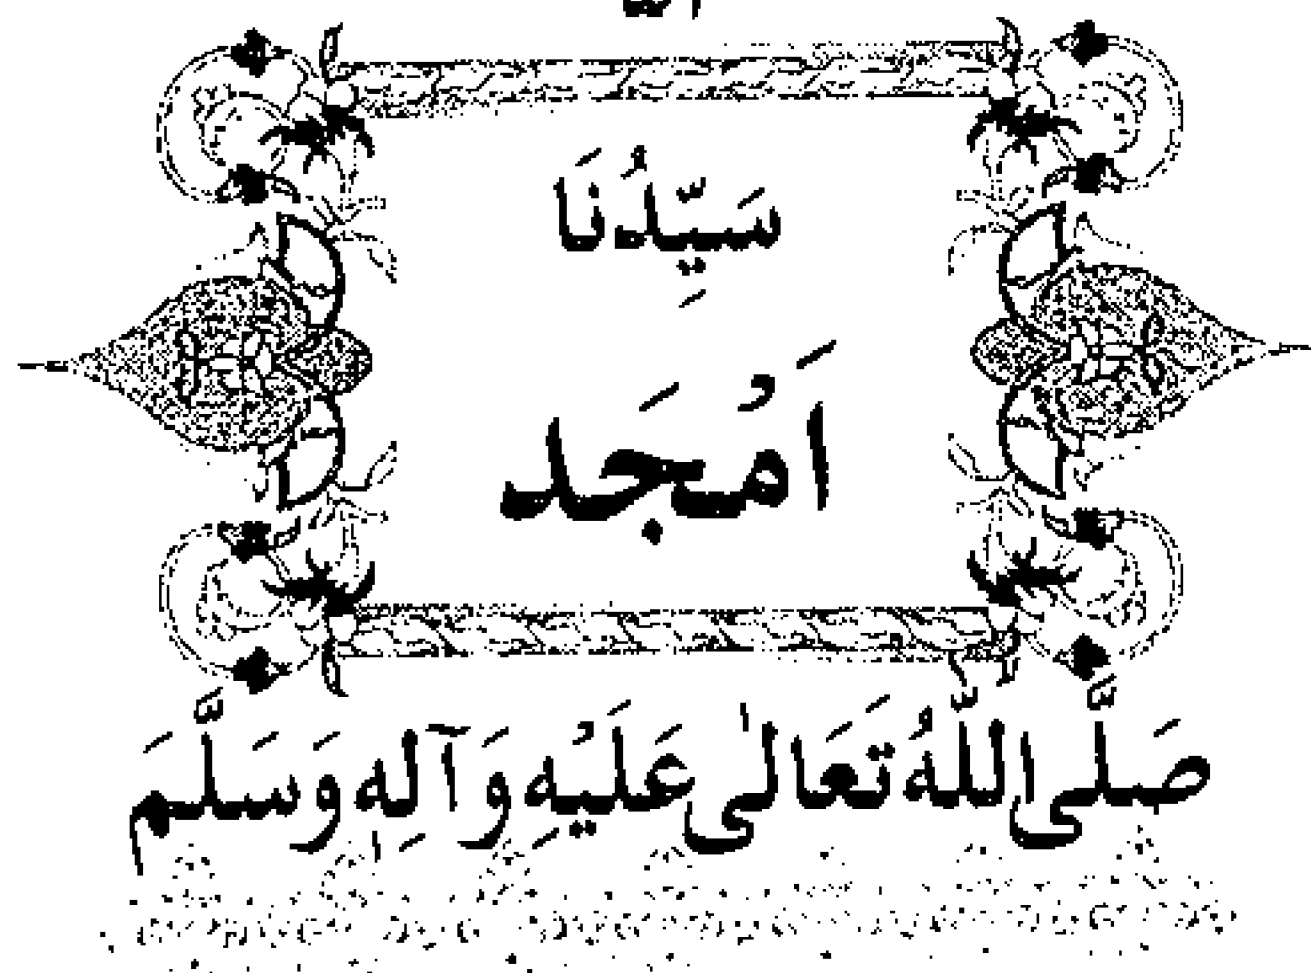 سَیِّدُنَا
اَمْجَد
صَلَّی اللّٰهُ تَعَالٰی عَلَیْهِ وَآلِهٖ وَسَلَّمَ